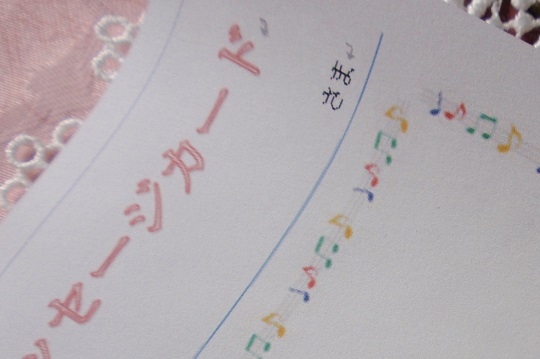 ッセージカード
さま